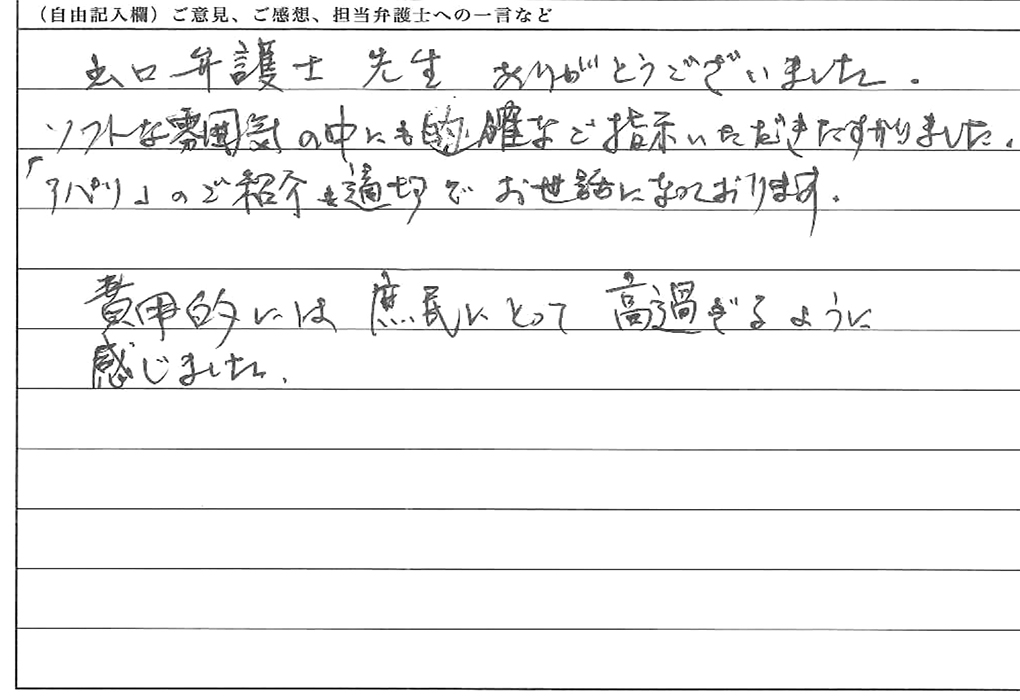 （自由記入欄）ご意見、ご感想、担当弁護士への一言など
出口弁護士 先生 ありがとうございました。
ソフトな雰囲気の中にも的確なご指示いただきたすかりました。
「アパリ」のご紹介も適切でお世話になっております。
費用的には庶民にとって高過ぎるように
感じました。